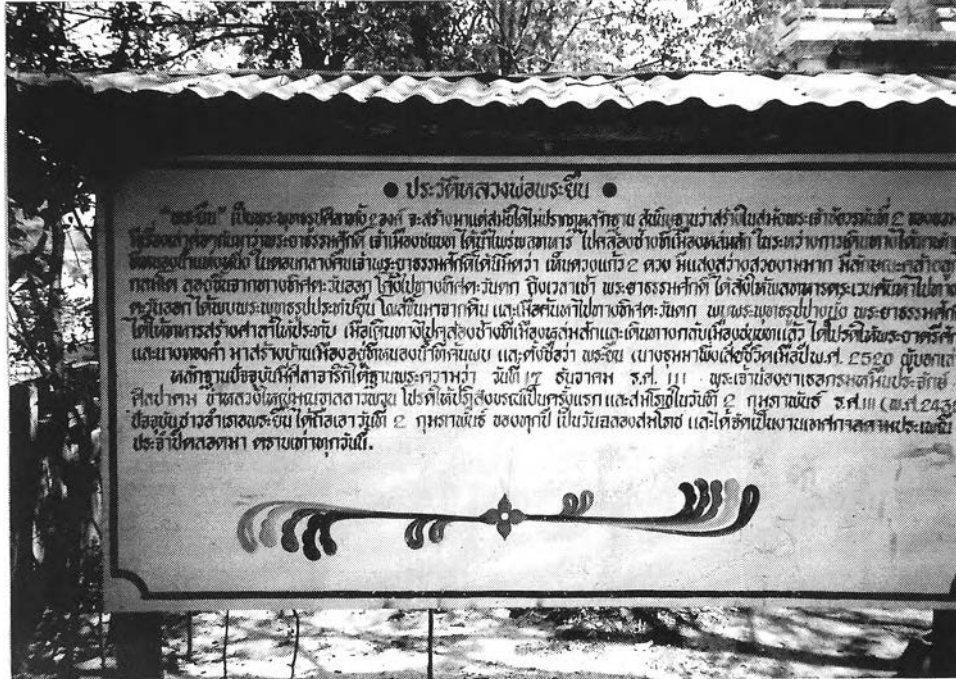 ● ประวัติหลวงพ่อพระยืน ●
"พระยืน" เป็นพระพุทธรูปศิลาทั้ง 2 องค์ จะสร้างมาแต่สมัยใดไม่ปรากฏหลักฐาน สันนิษฐานว่าสร้างในสมัยพระเจ้าชัยวรมันที่ 2 ของขอม
มีเรื่องเล่าต่อกันมาว่าพระยาธรรมศักดิ์ เจ้าเมืองชนบท ได้นำไพร่พลทหาร ไปคล้องช้างที่เมืองหล่มสัก ในระหว่างการเดินทางได้มาพัก
ที่หนองน้ำแห่งหนึ่ง ในตอนกลางคืนเจ้าพระยาธรรมศักดิ์ได้นิมิตว่า เห็นดวงแก้ว 2 ดวง มีแสงสว่างสวยงามมาก มีลักษณะคล้ายลูก
ลอยขึ้นจากทางทิศตะวันออก โค้งไปทางทิศตะวันตก ถึงเวลาเช้า พระยาธรรมศักดิ์ ได้สั่งให้พลทหารตระเวนค้นหาไปทาง
ตะวันออก ได้พบพระพุทธรูปประทับยืน โผล่ขึ้นมาจากดิน และเมื่อค้นหาไปทางทิศตะวันตก พบพระพุทธรูปปางนั่ง พระยาธรรมศักดิ์
ได้ให้ทหารสร้างศาลาให้ประทับ เมื่อเดินทางไปคล้องช้างที่เมืองหล่มสักและเดินทางกลับเมืองชนบทแล้ว ได้โปรดให้พระยาศรี
และนางทองคำ มาสร้างบ้านเมืองอยู่ที่หนองน้ำที่ค้นพบ และตั้งชื่อว่า พระยืน (นางธุมมาพึ่งเสียชีวิตเมื่อปี พ.ศ. 2520 ผู้บอกเล่า
หลักฐานปัจจุบันมีศิลาจารึกใต้ฐานพระความว่า วันที่ 17 ธันวาคม ร.ศ. 111 พระเจ้าน้องยาเธอกรมหมื่นประจักษ์
ศิลปาคม ข้าหลวงใหญ่มณฑลลาวพวน โปรดให้ปฏิสังขรณ์เป็นครั้งแรก และสมโภชในวันที่ 2 กุมภาพันธ์ ร.ศ. 111 (พ.ศ. 243
ปัจจุบันชาวอำเภอพระยืน ได้ถือเอาวันที่ 2 กุมภาพันธ์ ของทุกปี เป็นวันฉลองสมโภช และได้จัดเป็นงานเทศกาลตามประเพณี
ประจำปีตลอดมา ตราบเท่าทุกวันนี้.